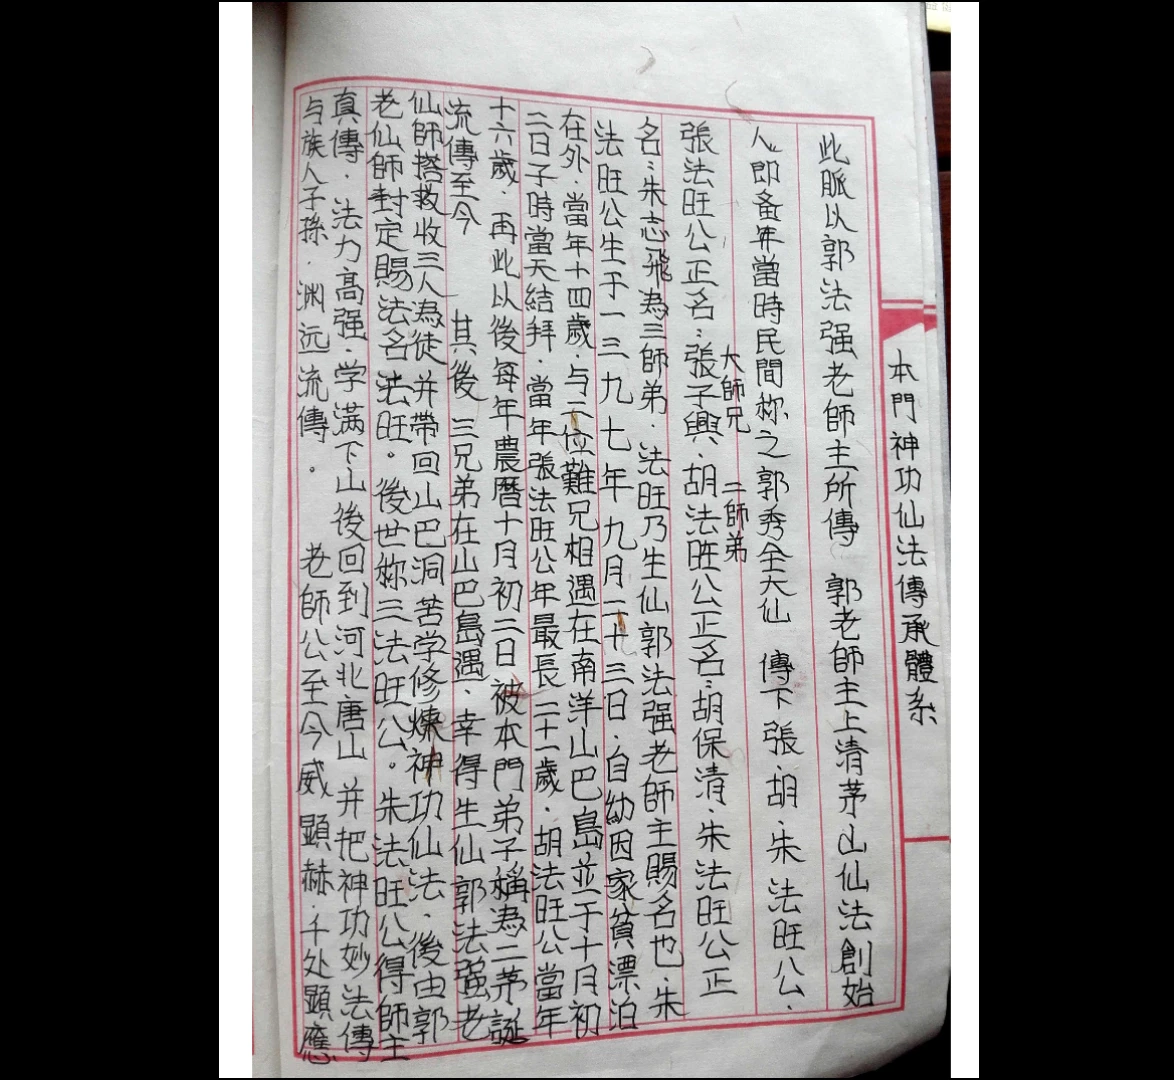 本門神功仙法傳承體系
此脈以郭法强老師主所傳 郭老師主上清茅山仙法創始
人 即 年當時民間称之郭秀全大仙 傳下張.胡.朱法旺公.
大師兄 二師弟
張法旺公正名:張子興.胡法旺公正名:胡保清.朱法旺公正
名:朱志飛為三師弟.法旺乃生仙郭法强老師主賜名也.朱
法旺公生于一三九七年九月二十三日.自幼因家貧漂泊
在外.當年十四歲.与二位難兄相遇在南洋山巴島並于十月初
二日子時當天結拜.當年張法旺公年最長二十一歲.胡法旺公當年
十六歲.再此以後每年農曆十月初二日被本門弟子稱為二茅誕
流傳至今 其後三兄弟在山巴島遇.幸得生仙郭法強老
仙師搭救收三人為徒并帶回山巴洞苦学修煉神功仙法.後由郭
老仙師封定賜法名法旺。後世称三法旺公。朱法旺公得師主
真傳.法力高强.学满下山後回到河北唐山并把神功妙法傳
与族人子孫.渊远流傳。 老師公至今威顯赫.千处顯應